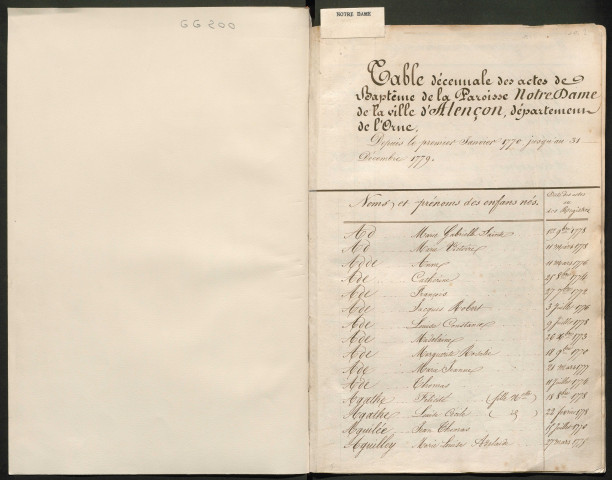 GG 200
NOTRE DAME
Table décennale des actes de
Baptême de la Paroisse Notre Dame
de la ville d'Alençon, département
de l'Orne.
Depuis le premier Janvier 1770 jusqu'au 31
Décembre 1779.
Noms et prénoms des enfans nés.
Date des actes
au
Registre
Ad Marie Gabrielle 9bre 1778
Ad Marie Victoire 11 mars 1778
Adde Anne 11 mars 1776
Ade Catherine 25 8bre 1774
Ade François 27 7bre 1772
Ade Jacques Robert 3 juillet 1776
Ade Louise Constance 9 juillet 1778
Ade Madelaine 1773
Ade Marguerite Rosalie 18 9bre 1770
Ade Marie Jeanne 21 mars 1777
Ade Thomas 11 juillet 1774
Agathe Félicité (fille Nlle) 18 8bre 1778
Agathe Louise Cécile (id) 22 février 1778
Aguilée Jean Thomas juillet 1770
Aguilley Marie Louise Adelaïde 27 mars